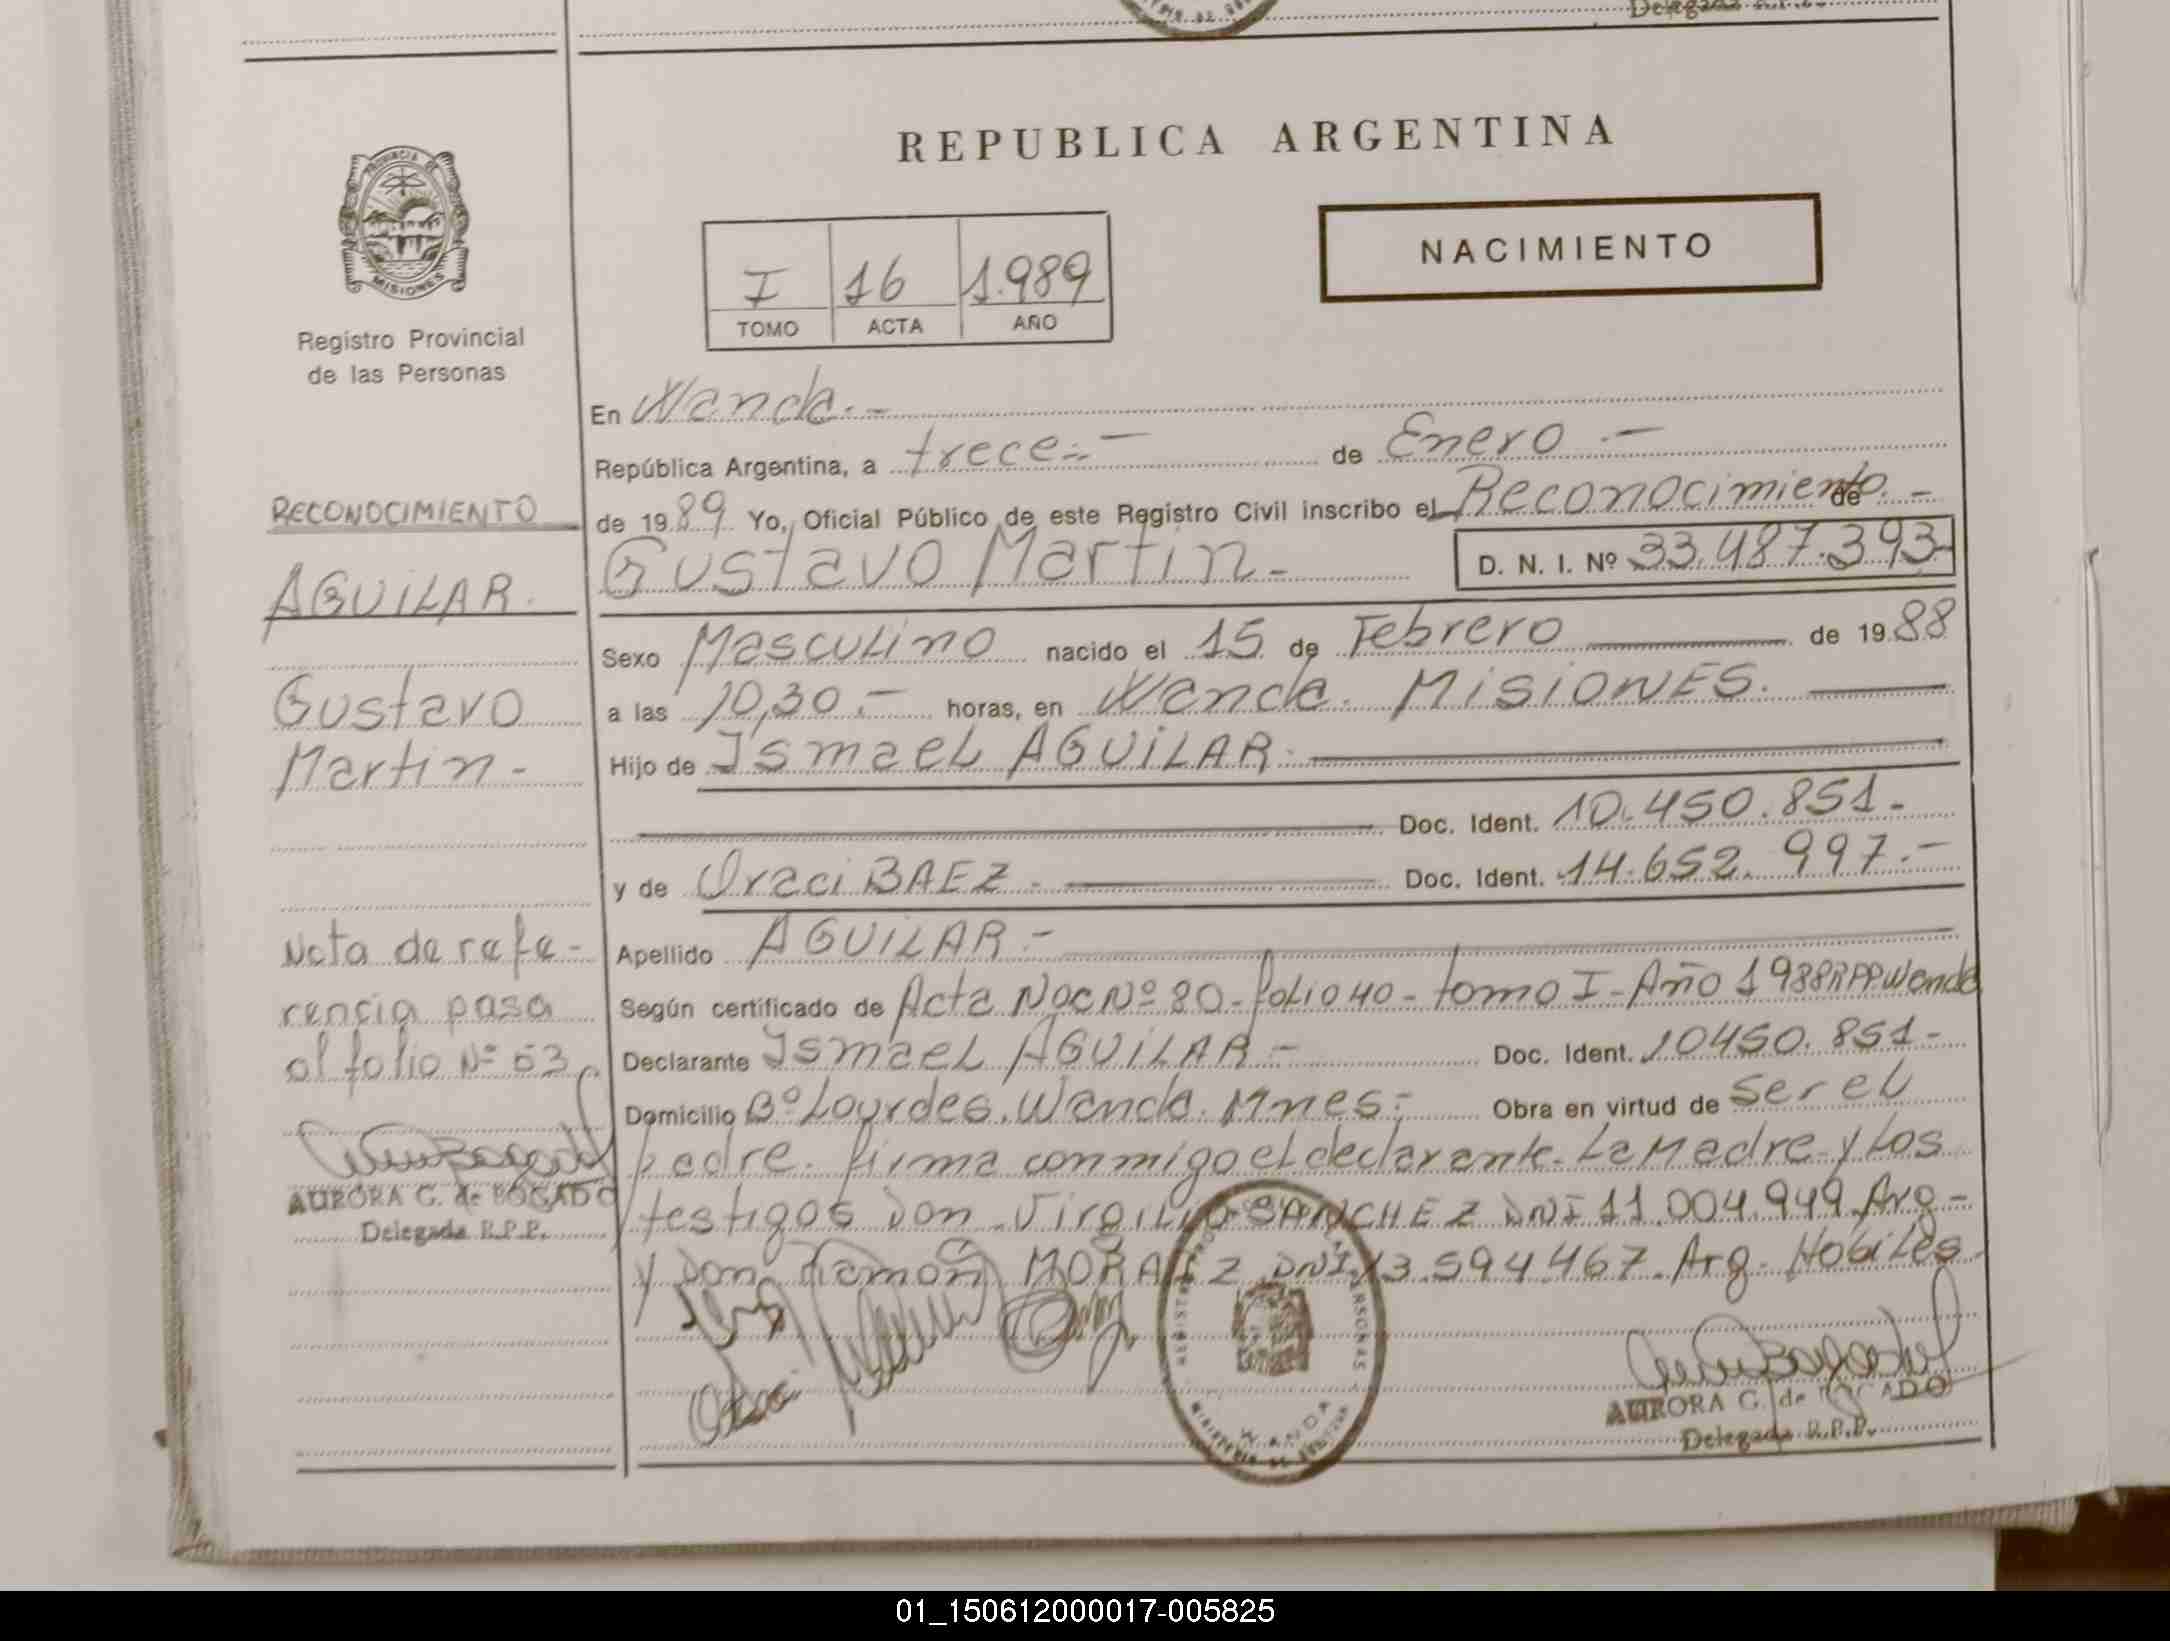 Delegada R.P.P.
REPUBLICA ARGENTINA
PROVINCIA DE MISIONES
Registro Provincial
de las Personas
I 16 1.989
TOMO ACTA AÑO
NACIMIENTO
RECONOCIMIENTO
AGUILAR.
Gustavo
Martin.-
Nota de refe-
rencia pasa
al folio Nº 53
AURORA G. de BOGADO
Delegada R.P.P.
En Wanda.-
República Argentina, a trece.- de Enero.-
de 1989 Yo, Oficial Público de este Registro Civil inscribo el Reconocimiento.- de
Gustavo Martin.- D. N. I. Nº 33.487.393-
Sexo Masculino nacido el 15 de Febrero de 1988
a las 10,30.- horas, en Wanda. MISIONES.
Hijo de Ismael AGUILAR.
Doc. Ident. 10.450.851.-
y de Oraci BAEZ. Doc. Ident. 14.652.997.-
Apellido AGUILAR.-
Según certificado de Acta Nac Nº 80-folio 40-tomo I-Año 1988 RPP Wanda
Declarante Ismael AGUILAR.- Doc. Ident. 10450.851-
Domicilio Bº Lourdes. Wanda. Mnes.- Obra en virtud de ser el
padre. firma conmigo el declarante. La Madre y Los
testigos Don Virgilio SANCHEZ DNI 11.004.949 Arg-
y Don Ramon DNI 13.594.467. Arg. Habiles.
WANDA
AURORA G. de BOGADO
Delegada R.P.P.
01_150612000017-005825